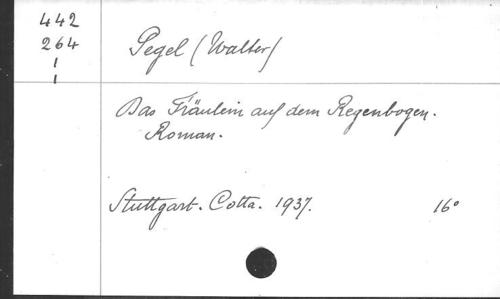 442
264
1
1
Pegel (Walter)
Das Fräulein auf dem Regenbogen.
Roman.
Stuttgart. Cotta. 1937. 16°